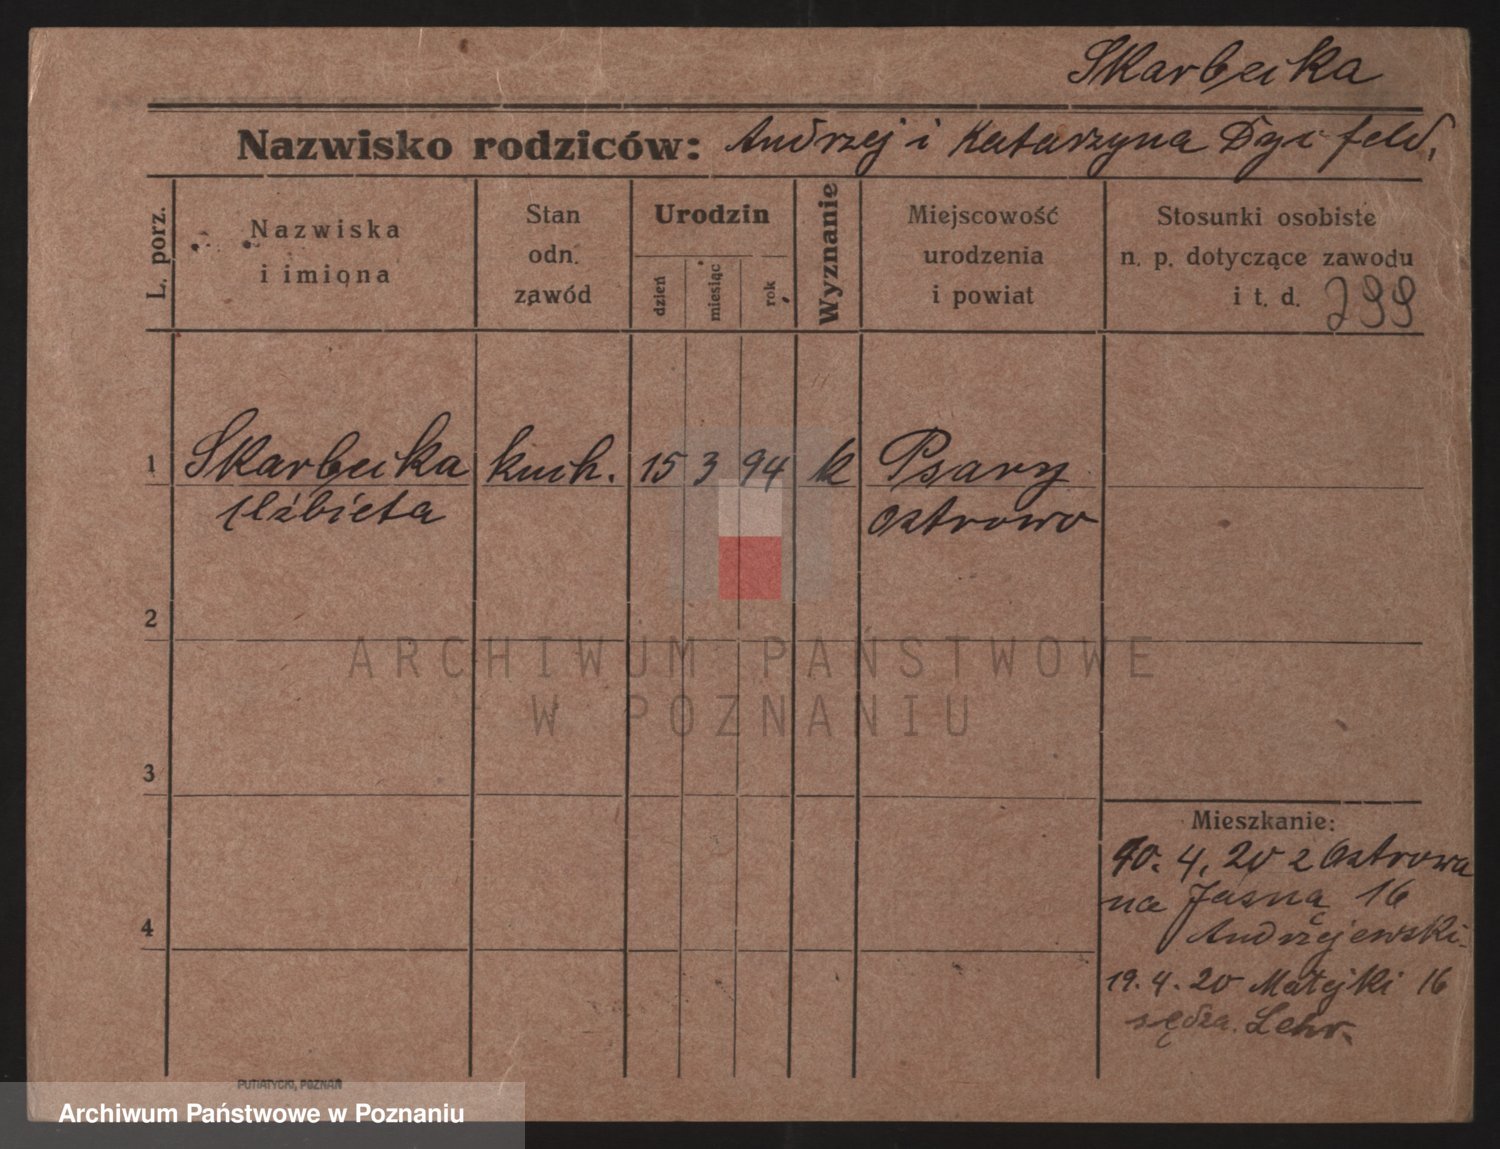 Skarbecka
Nazwisko rodziców: Andrzej i Katarzyna
L. porz.
Nazwiska
i imiona
Stan
odn.
zawód
Urodzin
dzień
miesiąc
rok
Wyznanie
Miejscowość
urodzenia
i powiat
Stosunki osobiste
n. p. dotyczące zawodu
i t. d. 299
1 Skarbecka kuch. 15 3 94 k Psary
Elżbieta Ostrowo
2
3
4
Mieszkanie:
10. 4. 20 z Ostrowa
na Jasną 16
Andrzejewski
19. 4. 20 Matejki 16
sędza. Lehr.
PUTIATYCKI, POZNAŃ
ARCHIWUM PAŃSTWOWE
W POZNANIU
Archiwum Państwowe w Poznaniu